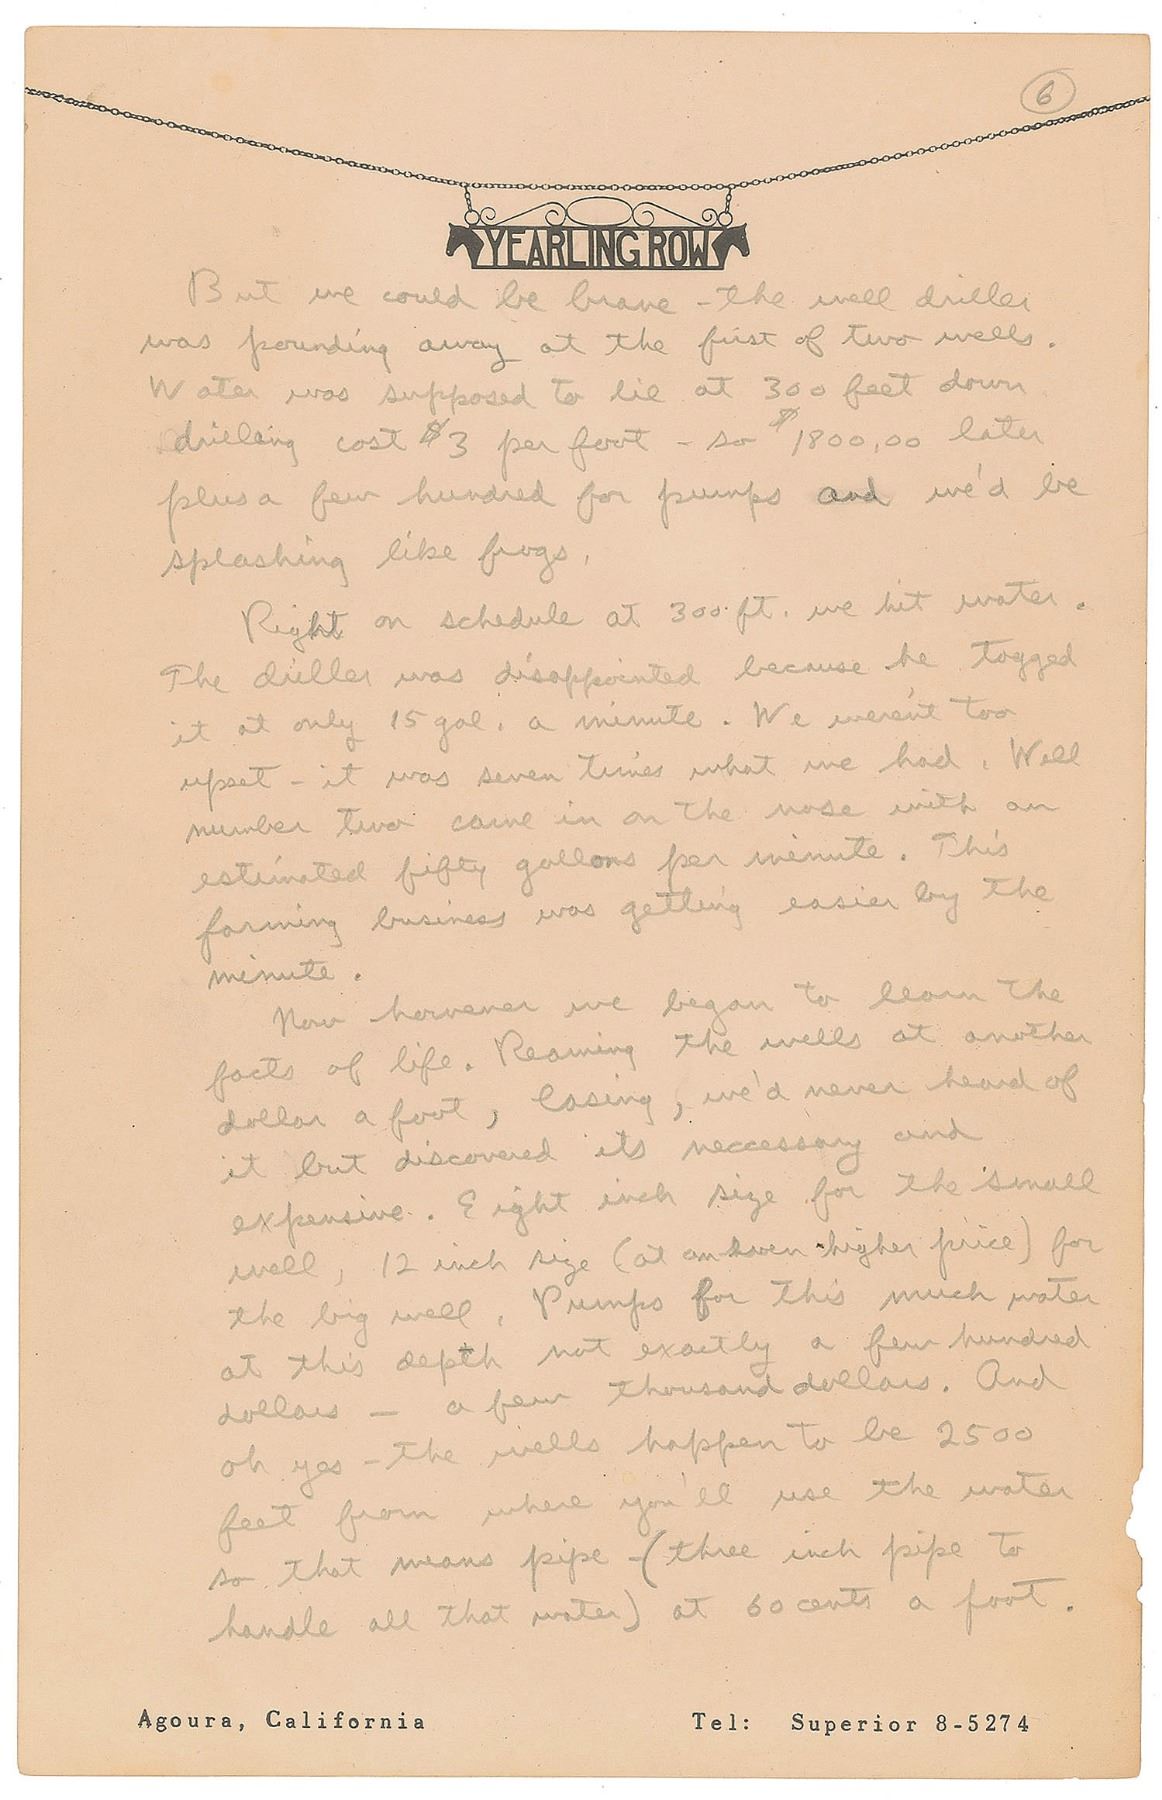 6
YEARLING ROW
But we could be brave - the well driller
was pounding away at the first of two wells.
Water was supposed to lie at 300 feet down
drilling cost $3 per foot - so $1800.00 later
plus a few hundred for pumps and we'd be
splashing like frogs.
Right on schedule at 300 ft. we hit water.
The driller was disappointed because he togged
it at only 15 gal. a minute. We weren't too
upset - it was seven times what we had. Well
number two came in on the nose with an
estimated fifty gallons per minute. This
farming business was getting easier by the
minute.
Now however we began to learn the
facts of life. Reaming the wells at another
dollar a foot, Casing, we'd never heard of
it but discovered its neccessary and
expensive. Eight inch size for the small
well, 12 inch size (at an even higher price) for
the big well. Pumps for this much water
at this depth not exactly a few hundred
dollars — a few thousand dollars. And
oh yes - the wells happen to be 2500
feet from where you'll use the water
so that means pipe - (three inch pipe to
handle all that water) at 60 cents a foot.
Agoura, California Tel: Superior 8-5274